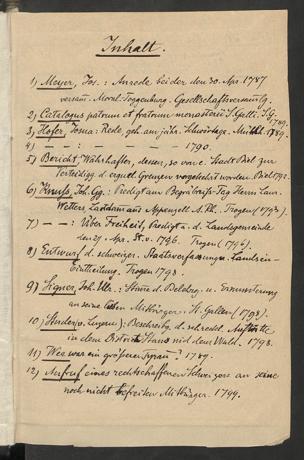 Inhalt.
1) Meyer, Jos.: Anrede bei der den 30. Apr. 1787
versam. Moral. Toggenburg. Gesellschaftsversamlg.
2) Catalogus patrum et fratrum monasterii S. Galli. S.G. 1789.
3) Hofer, Josua: Rede, geh. am jährl. Schwörtage. Mülh. 1789.
4) — — 1790.
5) Bericht, Wahrhafter, dessen, so von e. Stadt Biel zur
Verteidigg d. ergriff. Grenzen vorgekehrt worden. Biel 1792.
6) Knuss, Joh. Gg.: Predigt am Begräbnis-Tag Herrn Laur.
Wetters Landamans Appenzell A. Rh. Trogen (1793).
7) — — : Über Freiheit, Predigt a. d. Landsgemeinde
den 27. Apr. 1796. Trogen (1796).
8) Entwurf d. schweizer. Staatsverfassung u. Landes-
Einteilung. Trogen 1798.
9) Signer, Joh. Ulr.: Stime d. Belehrg. u. Ermunterung
an seine lieben Mitbürger. St. Gallen (1798).
10) Studer (v. Luzern): Beschreibg d. schreckl. Auftritte
in dem District Stans nid dem Wald. 1798.
11) Wer war ein größerer Tyran —? 1789.
12) Aufruf eines rechtschaffenen Schweizers an seine
noch nicht befreiten Mitbürger. 1799.